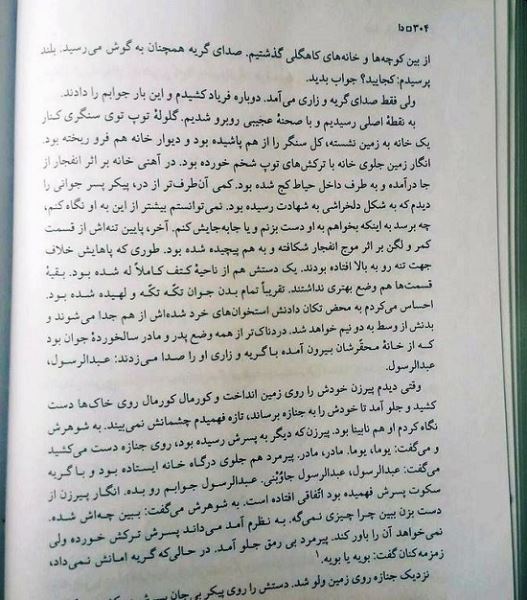 ۳۰۴ □ دا
از بین کوچه‌ها و خانه‌های کاهگلی گذشتیم. صدای گریه همچنان به گوش می‌رسید. بلند
پرسیدم: کجایید؟ جواب بدید.
ولی فقط صدای گریه و زاری می‌آمد. دوباره فریاد کشیدم و این بار جوابم را دادند.
به نقطهٔ اصلی رسیدیم و با صحنهٔ عجیبی روبرو شدیم. گلولهٔ توپ توی سنگری کنار
یک خانه به زمین نشسته، کل سنگر را از هم پاشیده بود و دیوار خانه هم فرو ریخته بود.
انگار زمین جلوی خانه با ترکش‌های توپ شخم خورده بود. در آهنی خانه بر اثر انفجار از
جا درآمده و به طرف داخل حیاط کج شده بود. کمی آن‌طرف‌تر از در، پیکر پسر جوانی را
دیدم که به شکل دلخراشی به شهادت رسیده بود. نمی‌توانستم بیشتر از این به او نگاه کنم،
چه برسد به اینکه بخواهم به او دست بزنم و یا جابه‌جایش کنم. آخر، پایین تنه‌اش از قسمت
کمر و لگن بر اثر موج انفجار شکافته و به هم پیچیده شده بود. طوری که پاهایش خلاف
جهت تنه رو به بالا افتاده بودند. یک دستش هم از ناحیهٔ کتف کاملاً له شده بود. بقیهٔ
قسمت‌ها هم وضع بهتری نداشتند. تقریباً تمام بدن جوان تکّه تکّه و لهیده شده بود.
احساس می‌کردم به محض تکان دادنش استخوان‌های خرد شده‌اش از هم جدا می‌شوند و
بدنش از وسط به دو نیم خواهد شد. دردناک‌تر از همه وضع پدر و مادر سالخوردهٔ جوان بود
که از خانهٔ محقّرشان بیرون آمده با گریه و زاری او را صدا می‌زدند: عبدالرسول،
عبدالرسول.
وقتی دیدم پیرزن خودش را روی زمین انداخت و کورمال کورمال روی خاک‌ها دست
کشید و جلو آمد تا خودش را به جنازه برساند، تازه فهمیدم چشمانش نمی‌بیند. به شوهرش
نگاه کردم او هم نابینا بود. پیرزن که دیگر به پسرش رسیده بود، روی جنازه دست می‌کشید
و می‌گفت: یوما، یوما. مادر، مادر. پیرمرد هم جلوی درگاه خانه ایستاده بود و با گریه
می‌گفت: عبدالرسول، عبدالرسول جاوُبْنی. عبدالرسول جوابم رو بده. انگار پیرزن از
سکوت پسرش فهمیده بود اتّفاقی افتاده است. به شوهرش می‌گفت: ببین چه‌اش شده.
دست بزن ببین چرا چیزی نمی‌گه. به نظرم آمد می‌داند پسرش ترکش خورده ولی
نمی‌خواهد آن را باور کند. پیرمرد بی رمق جلو آمد. در حالی‌که گریه امانش نمی‌داد،
زمزمه‌کنان گفت: بویه یا بویه.۱
نزدیک جنازه روی زمین ولو شد. دستش را روی پیکر بی‌جان